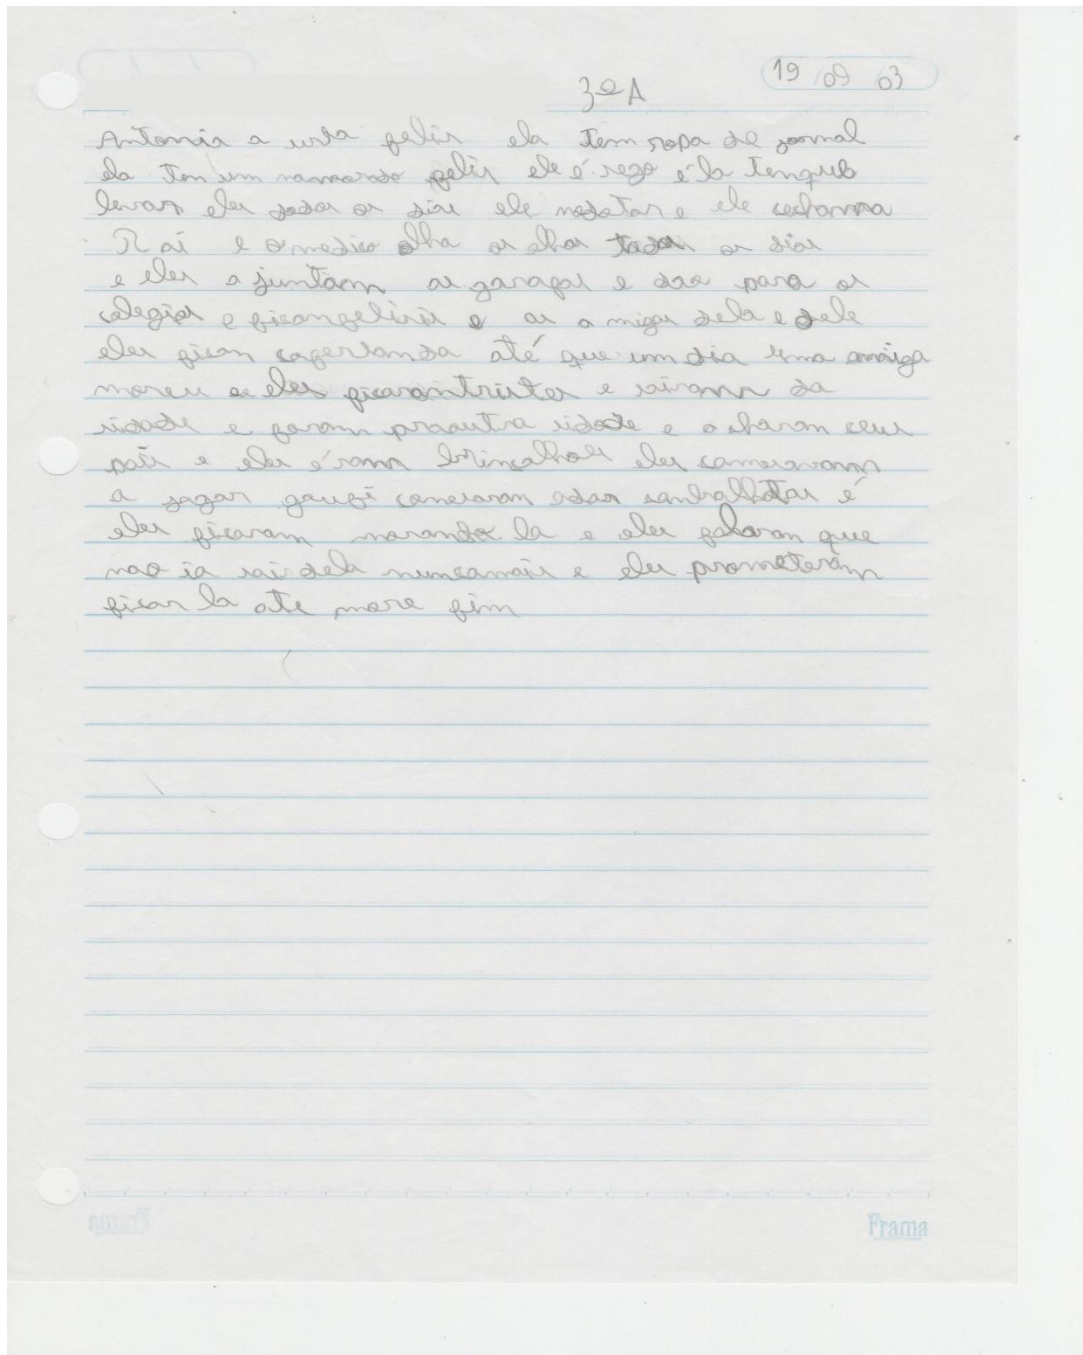 19 09 03
3ºA
Antonia a ursa felis ela tem ropa de jornal
ela tem um namorado felis ele é sego é la tenque
levar eles todos os dias ele no e ele
Rai e o medico olha os olhos todos os dias
e eles a juntam as garafas e dão para os
colegios e ficam felisis e as a migas dela e dele
eles ficam até que um dia uma amiga
moreu e eles ficaram tristes e sairam da
sidade e foram pra outra sidade e a charam seus
pais e eles é ram brincalhois eles comesaram
a jogar comesaram a dar canbalhotas é
eles ficaram morando la e eles falaram que
nao ia sai dela nuncamais e eles prometeram
ficar la ate more fim
Frama